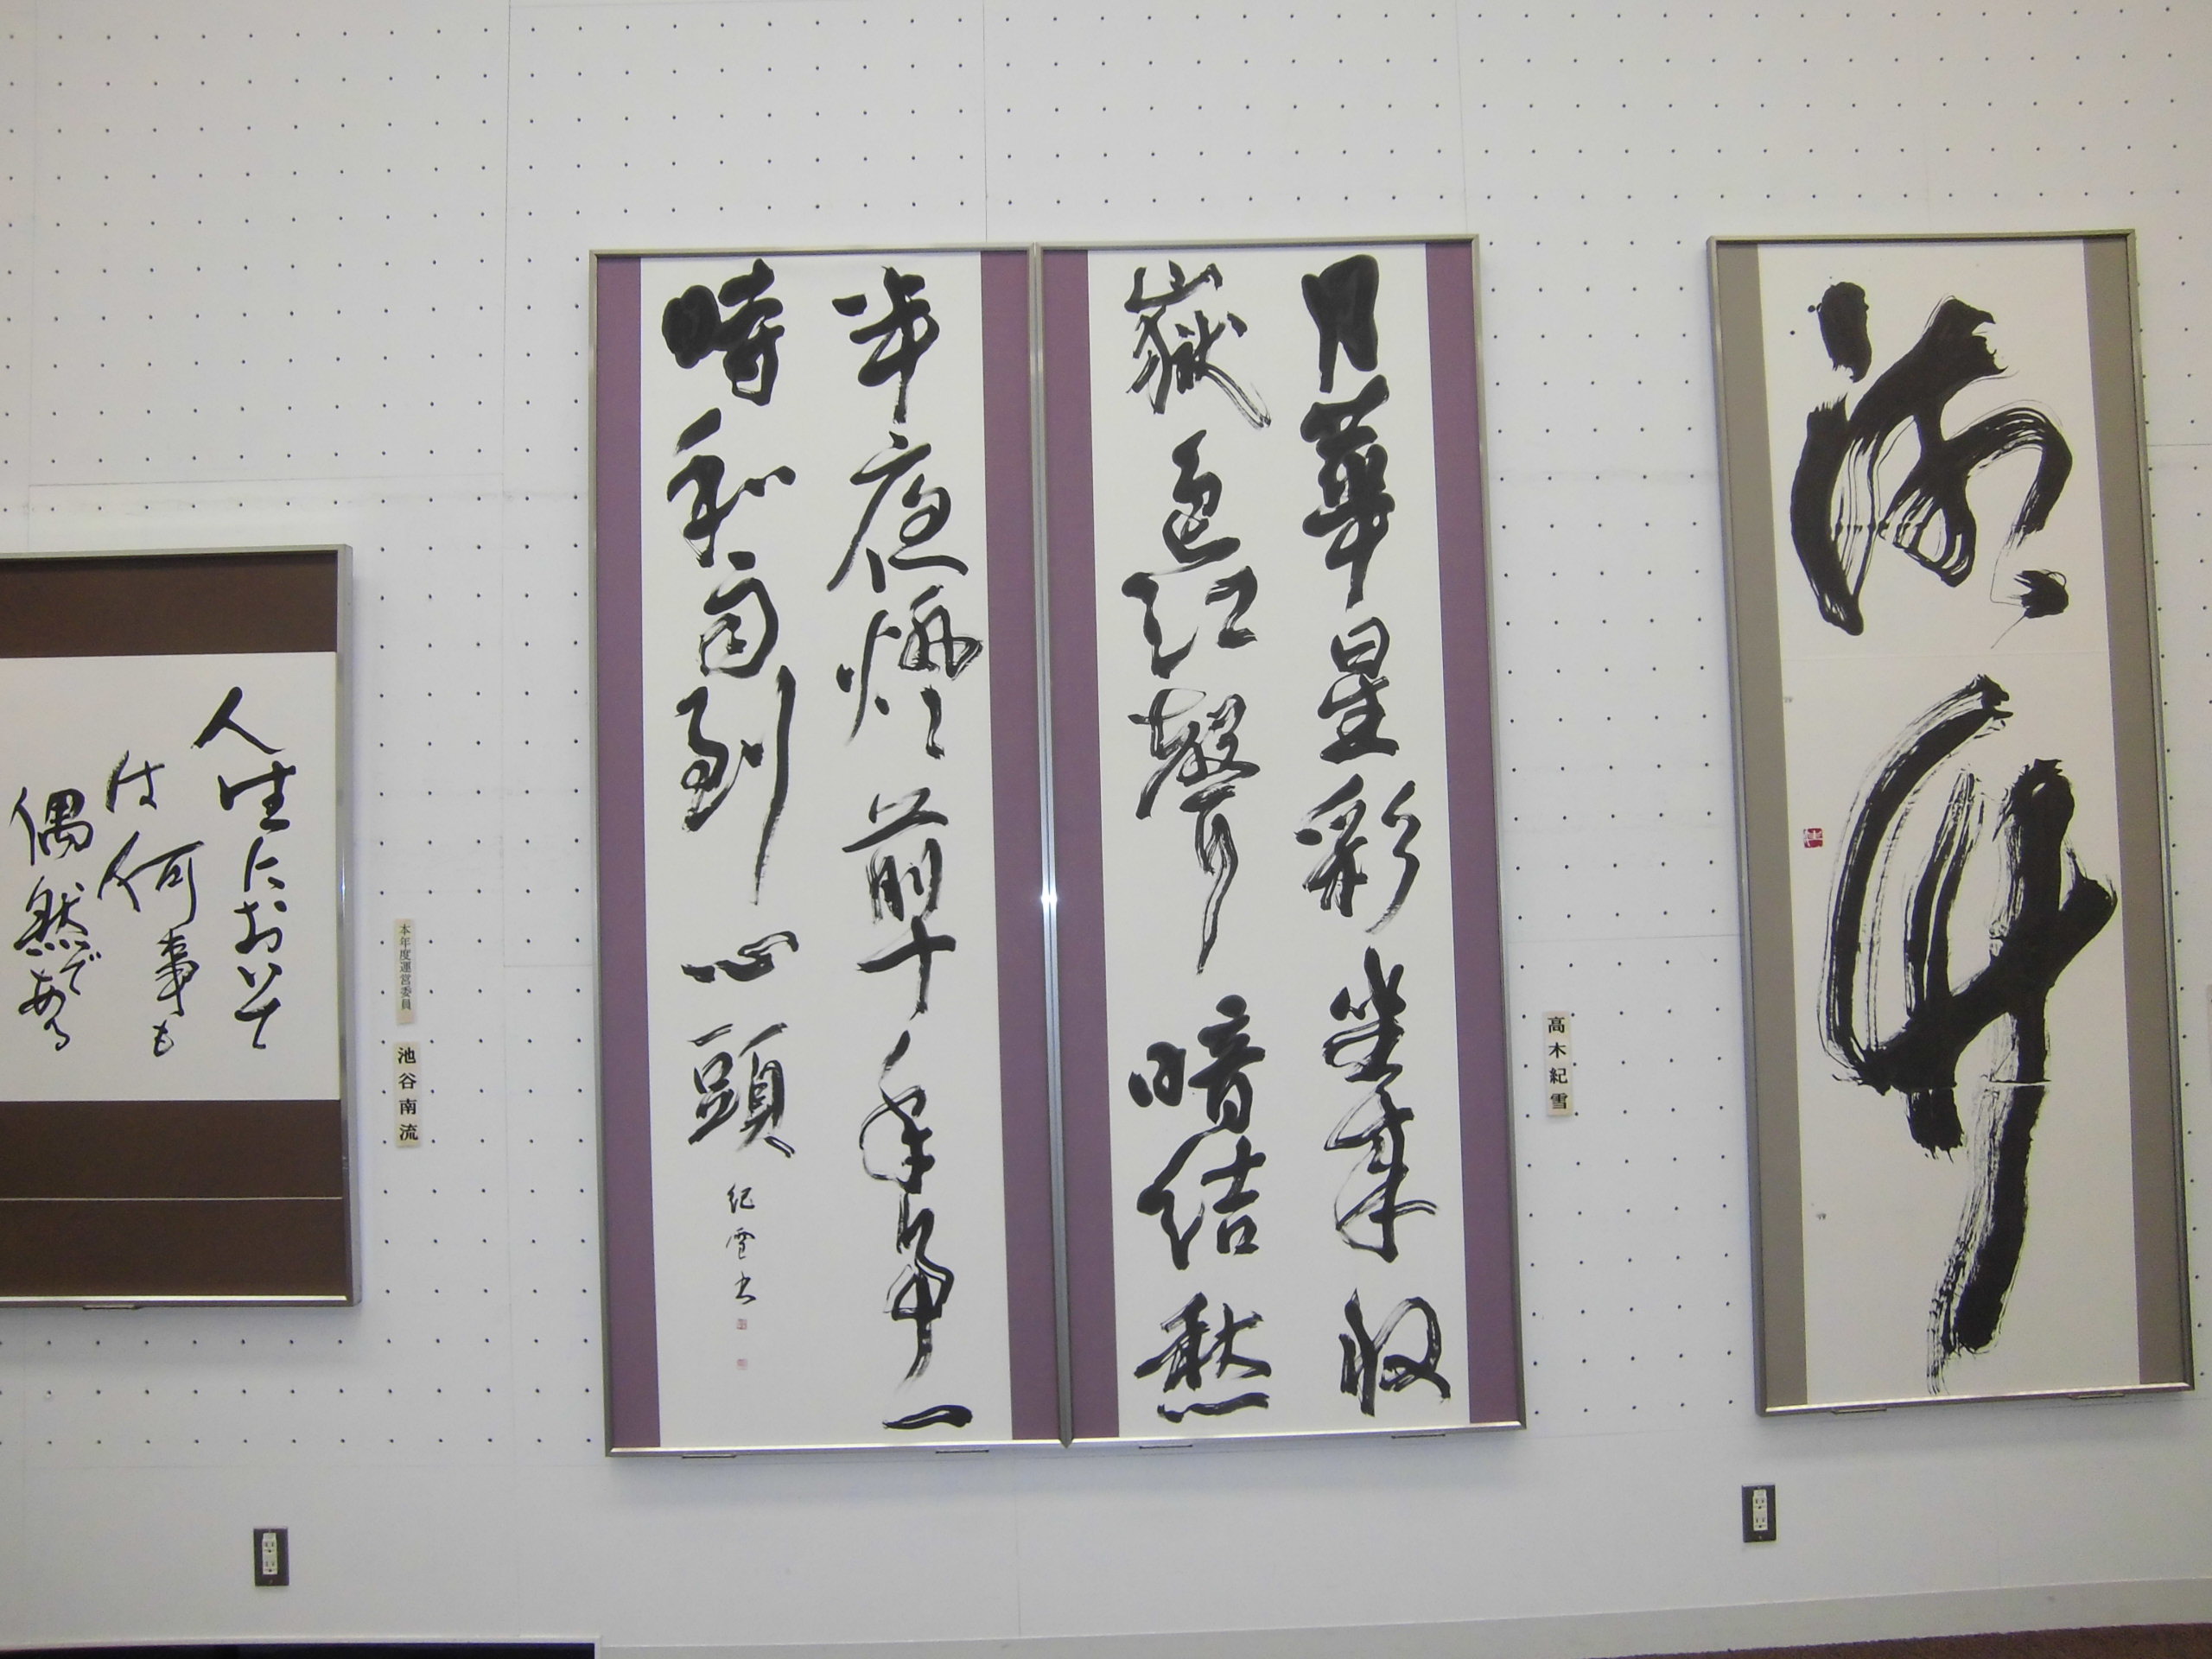 高木紀雪
月華星彩坐來収
嶽色江聲暗結愁
半夜燈前十年事一
時和雨到心頭
紀雪書
本年度運営委員
池谷南流
人生において
は何事も
偶然である